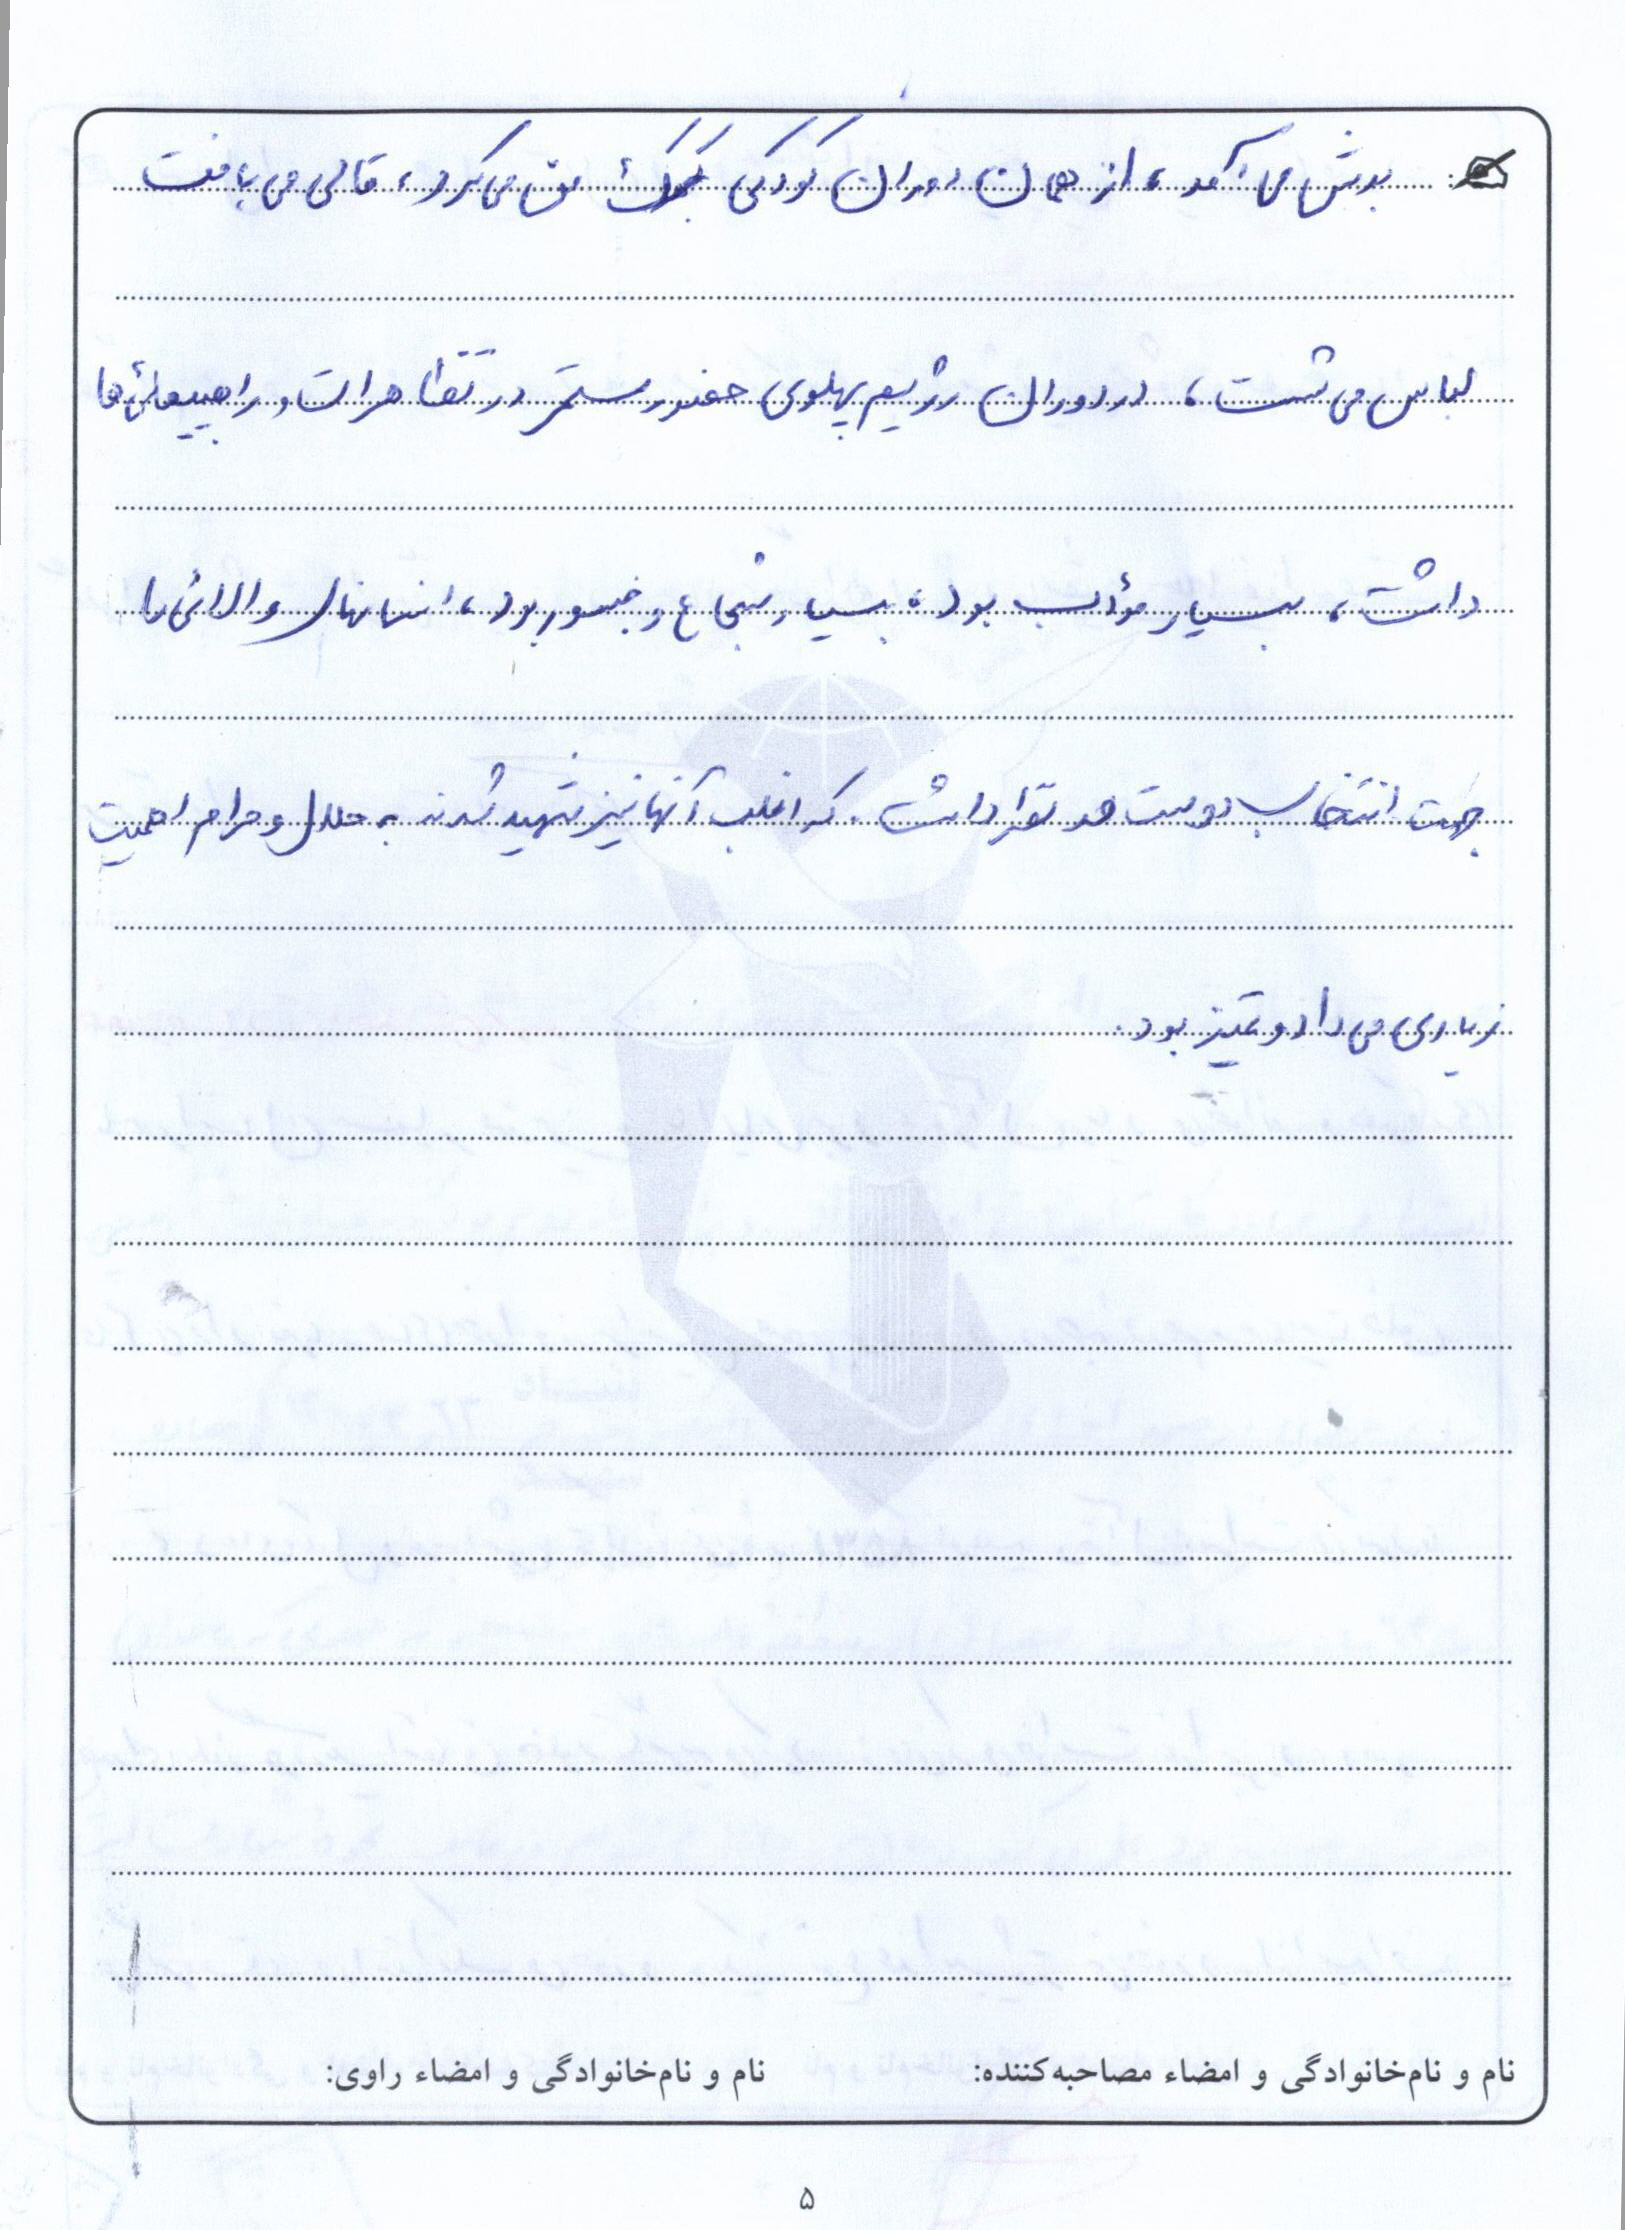 بدش می آمد، از همان دوران کودکی کمک من می کرد، قالی می بافت
لباس می شست، در دوران رژیم پهلوی حضور مستمر در تظاهرات و راهپیمائی ها
داشت، بسیار مؤدب بود، بسیار شجاع و جسور بود، والائی را
جهت انتخاب دوست خود قرار داشت. که اغلب آنها نیز شهید شدند به حلال و حرام اهمیت
زیادی می داد و تمیز بود.
نام و نام‌خانوادگی و امضاء مصاحبه‌کننده: نام و نام‌خانوادگی و امضاء راوی:
۵